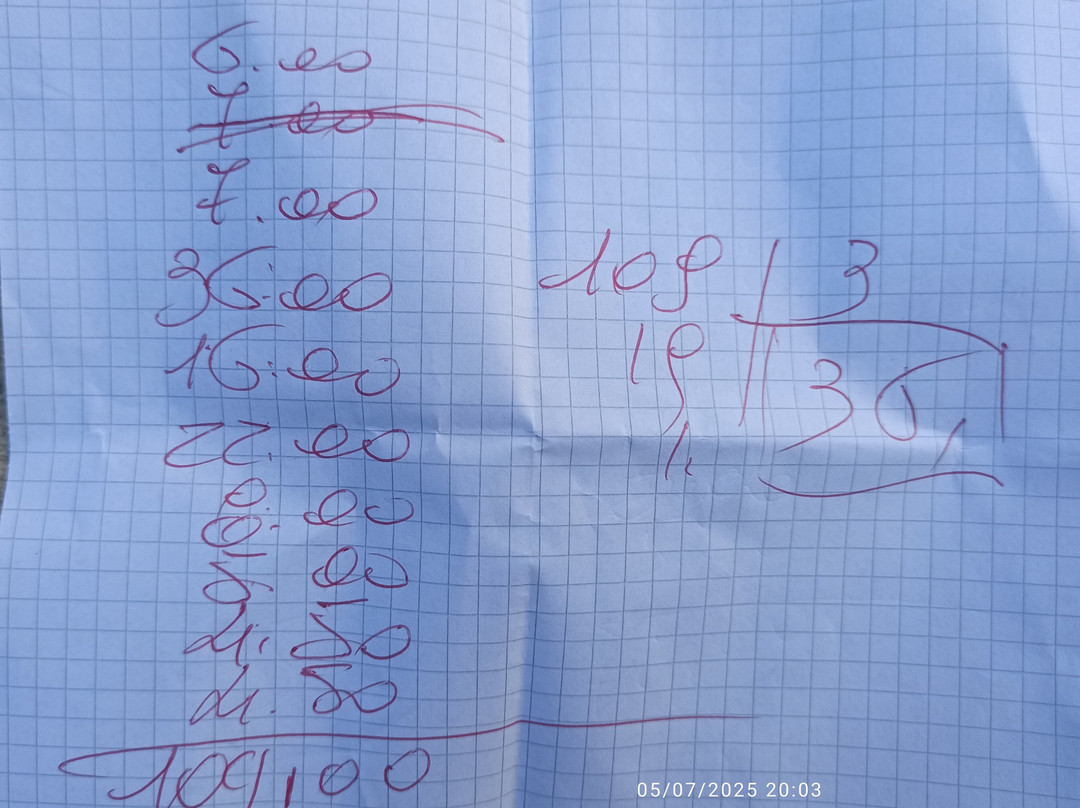 6.00
7.00
7.00
36.00
16.00
22.00
8.00
5.00
4.50
4.50
109,00
109 | 3
19 | 36,
1.
05/07/2025 20:03